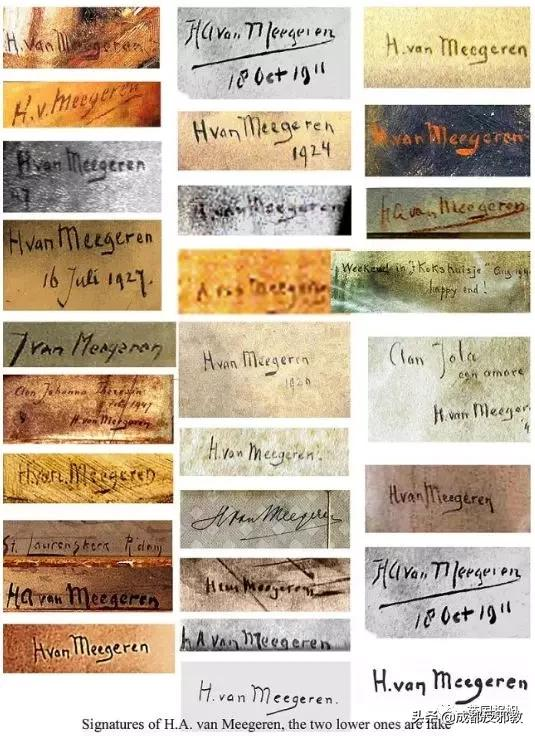 H. van Meegeren
H. v. Meegeren
H van Meegeren
47
H van Meegeren
16 Juli 1927.
J van Meegeren
Aan Johanna Theresia
1947
H. van Meegeren
H. van Meegeren
St. Laurenskerk R.dam
HA van Meegeren
H van Meegeren
HA van Meegeren
18 Oct 1911
H van Meegeren
1924
H. van Meegeren
H van Meegeren
H van Meegeren
H. van Meegeren.
H van Meegeren
H van Meegeren
HA van Meegeren
H. van Meegeren.
H. van Meegeren
H. van Meegeren
HA van Meegeren
Weekend in 't Kokshuisje
happy end!
Aan Jola
con amore
H. van Meegeren
H van Meegeren
HA van Meegeren
18 Oct 1911
H. van Meegeren
Signatures of H.A. van Meegeren, the two lower ones are fake
头条 @成都反邪教